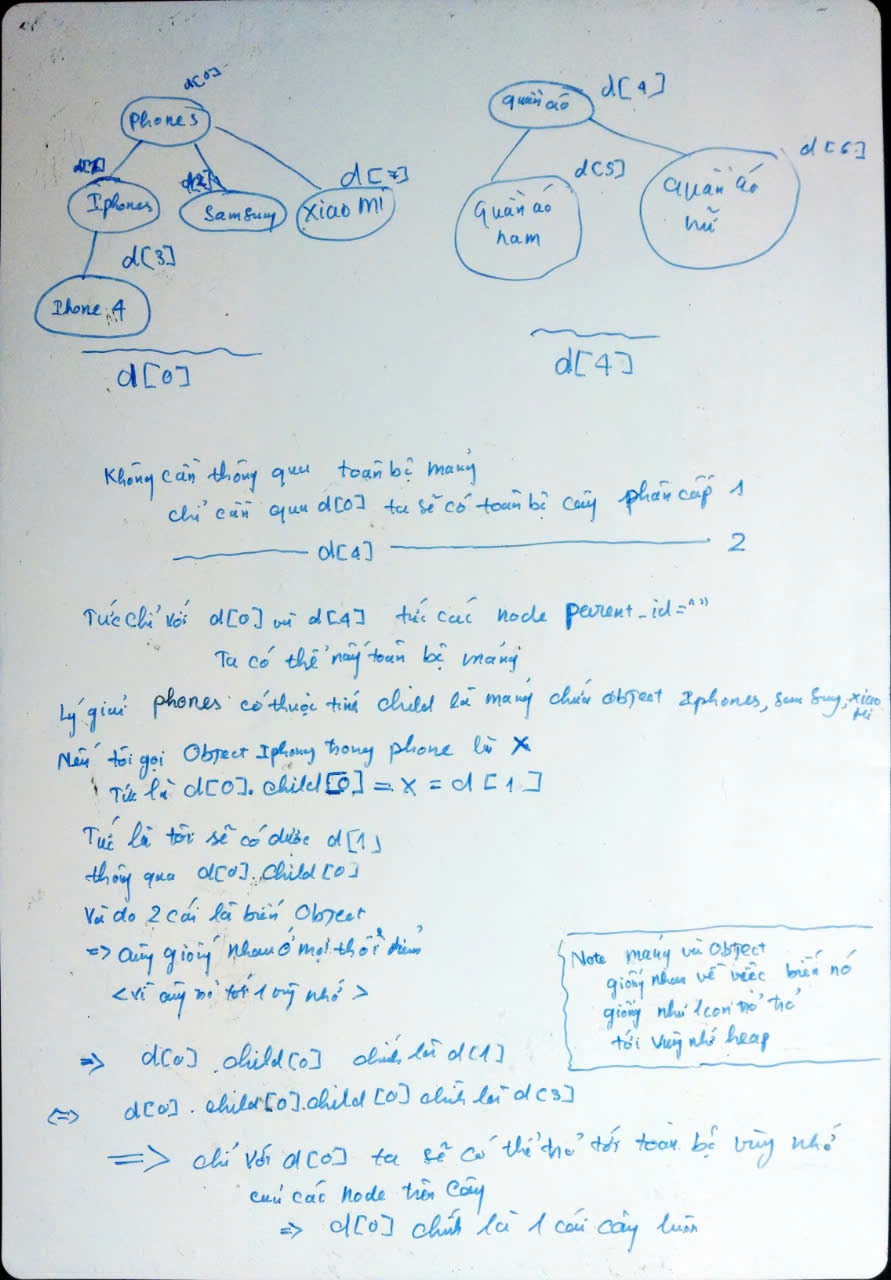 d[0]
phones
d[1]
Iphones
d[2]
Samsung
d[7]
xiao mi
d[3]
Iphone 4
d[0]
quần áo
d[4]
d[5]
quần áo
nam
d[6]
quần áo
nữ
d[4]
Không cần thông qua toàn bộ mảng
chỉ cần qua d[0] ta sẽ có toàn bộ cây phân cấp 1
d[4] 2
Tức chỉ với d[0] và d[4] tức các node perent_id=""
Ta có thể thấy toàn bộ mảng
Lý giải phones có thuộc tính child là mảng chứa object Iphones, Sam Sung, xiao
mi
Nếu tôi gọi Object Iphong trong phone là X
Tức là d[0].child[0] = X = d[1]
Tức là tôi sẽ có được d[1]
thông qua d[0].child[0]
Và do 2 cái là biến Object
=> cũng giống nhau ở mọi thời điểm
<vì cùng trỏ tới 1 vùng nhớ>
Note mảng và Object
giống nhau về việc biến nó
giống như 1 con trỏ trỏ
tới vùng nhớ heap
=> d[0].child[0] chính là d[1]
<=> d[0].child[0].child[0] chính là d[3]
=> chỉ với d[0] ta sẽ có thể trỏ tới toàn bộ vùng nhớ
của các node trên cây
=> d[0] chính là 1 cái cây luôn